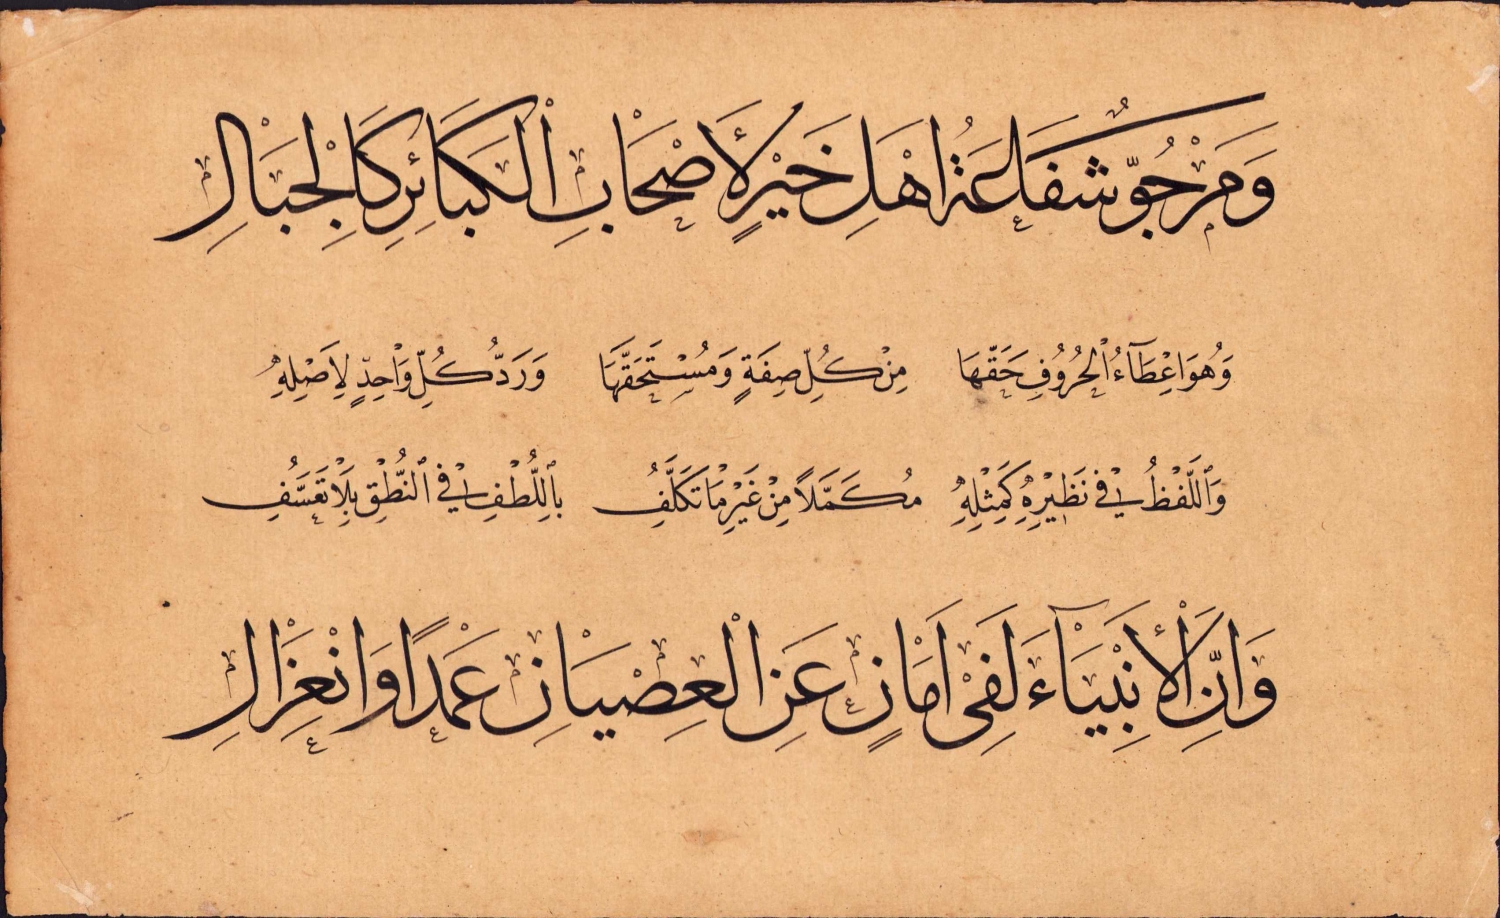 وَمَرْجُوٌّ شَفَاعَةُ اَهْلِ خَيْرٍ لِأَصْحَابِ الْكَبَائِرِ كَالْجِبَالِ
وَهُوَ اِعْطَآءُ الْحُرُوفِ حَقَّهَا مِنْ كُلِّ صِفَةٍ وَمُسْتَحَقَّهَا وَرَدُّ كُلِّ وَاحِدٍ لِاَصْلِهِ
وَاللَّفْظُ فِي نَظِيْرِهِ كَمِثْلِهِ مُكَمَّلًا مِنْ غَيْرِ مَا تَكَلُّفِ بِاللُّطْفِ فِي النُّطْقِ بِلَا تَعَسُّفِ
وَاِنَّ الْأَنْبِيَآءَ لَفِى اَمَانٍ عَنِ الْعِصْيَانِ عَمْدًا وَانْعِزَالِ